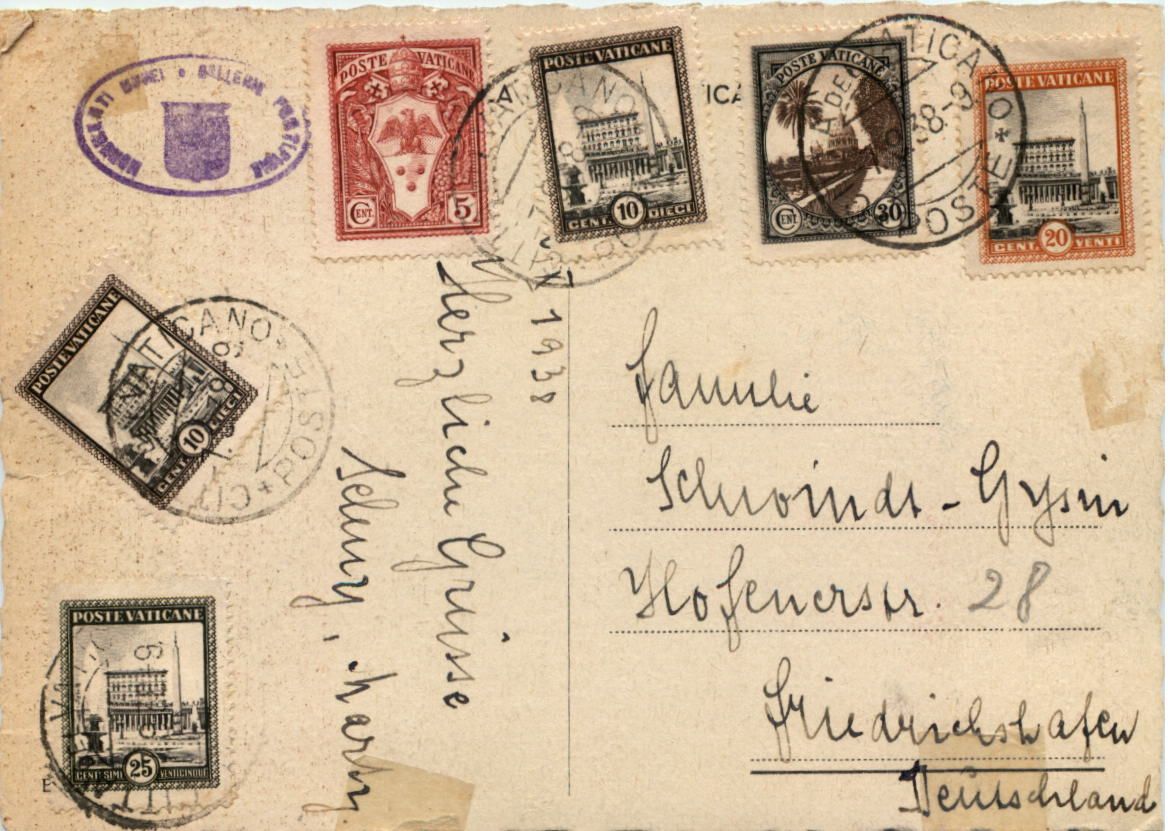 MUSEI E GALLERIE PONTIFICIE
POSTE VATICANE
CENT. 5
POSTE VATICANE
CENT. 10 DIECI
POSTE VATICANE
CENT 30
POSTE VATICANE
CENT. 20 VENTI
VATICANO
POSTE
POSTE VATICANE
CENT. 10 DIECI
VATICANO POSTE
POSTE VATICANE
CENTESIMI 25 VENTICINQUE
1938
Herzliche Grüsse
Familie
Schwindt-Gysin
Hofenerstr. 28
Friedrichshafen
Deutschland